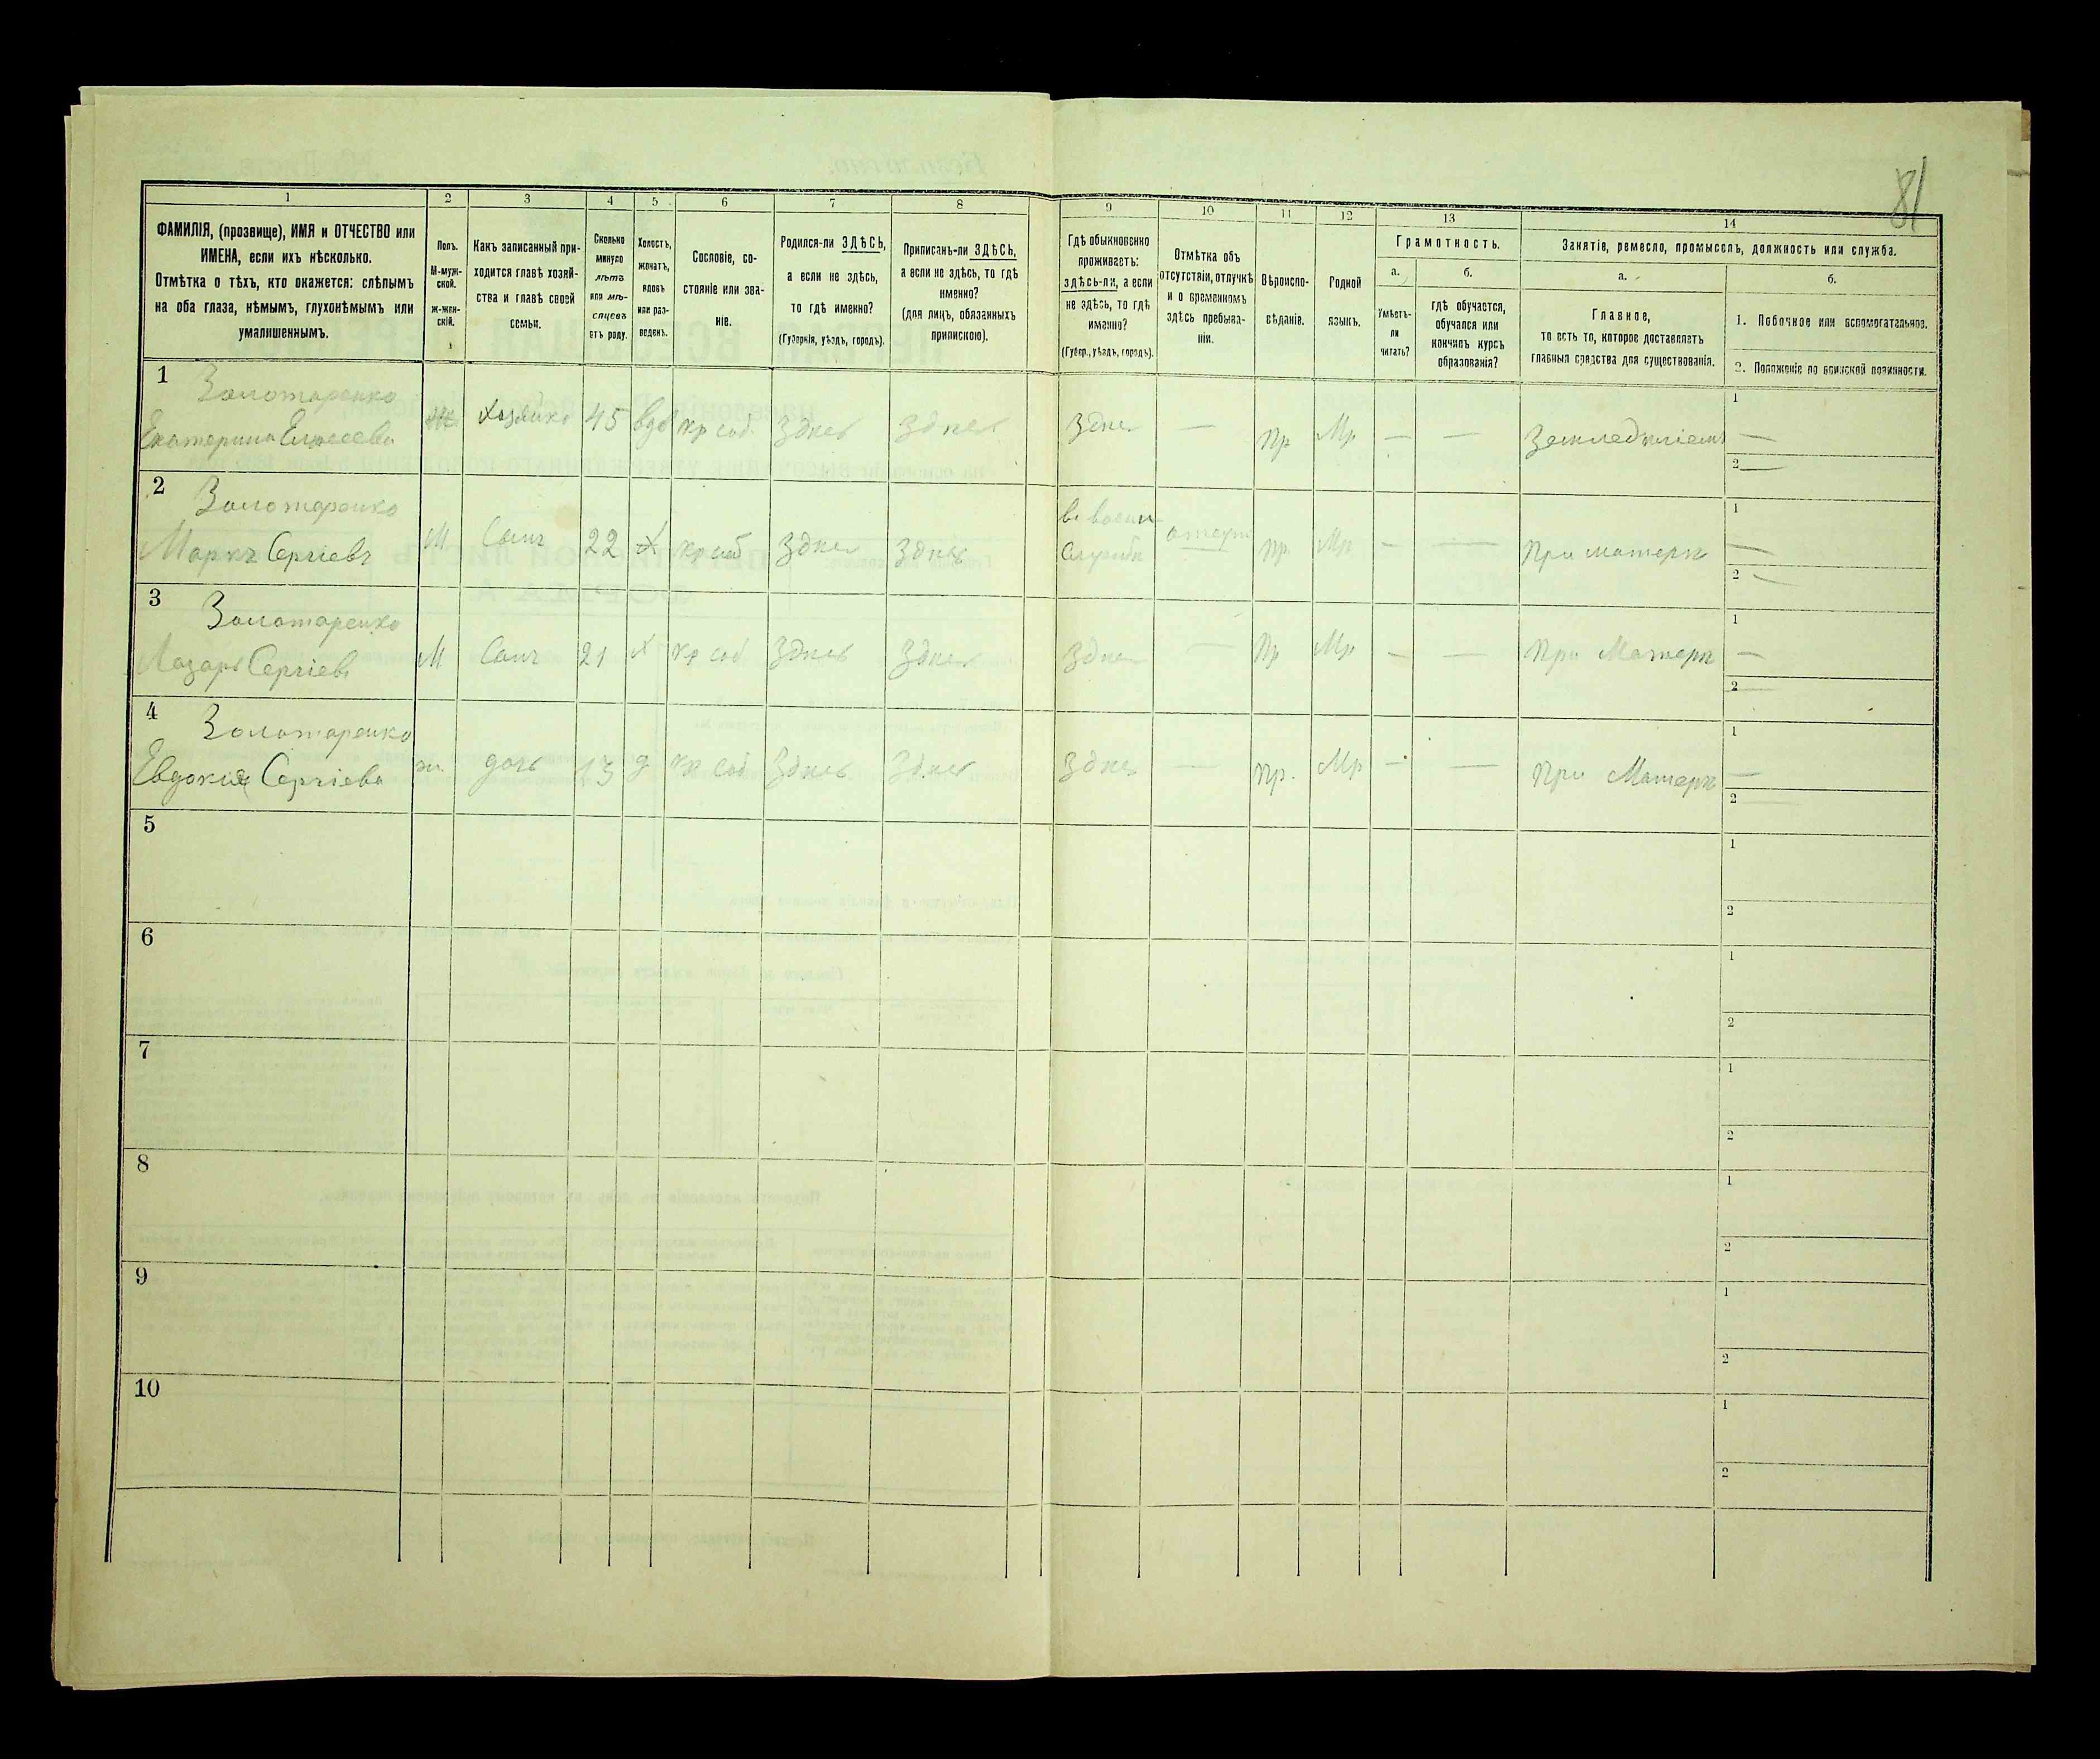 81
1
2
3
4
5
6
7
8
9
10
11
12
13
14
ФАМИЛІЯ, (прозвище), ИМЯ и ОТЧЕСТВО или
ИМЕНА, если ихъ нѣсколько.
Отмѣтка о тѣхъ, кто окажется: слѣпымъ
на оба глаза, нѣмымъ, глухонѣмымъ или
умалишеннымъ.
Полъ.
М-муж-
ской.
Ж-жен-
скій.
Какъ записанный при-
ходится главѣ хозяй-
ства и главѣ своей
семьи.
Сколько
минуло
лѣтъ
или мѣ-
сяцевъ
отъ роду.
Холостъ,
женатъ,
вдовъ
или раз-
веденъ.
Сословіе, со-
стояніе или зва-
ніе.
Родился-ли ЗДѢСЬ,
а если не здѣсь,
то гдѣ именно?
(Губернія, уѣздъ, городъ).
Приписанъ-ли ЗДѢСЬ,
а если не здѣсь, то гдѣ
именно?
(для лицъ, обязанныхъ
припискою).
Гдѣ обыкновенно
проживаетъ:
здѣсь-ли, а если
не здѣсь, то гдѣ
именно?
(Губер., уѣздъ, городъ).
Отмѣтка объ
отсутствіи, отлучкѣ
и о временномъ
здѣсь пребыва-
ніи.
Вѣроиспо-
вѣданіе.
Родной
языкъ.
Грамотность.
а.
б.
Умѣетъ-
ли
читать?
гдѣ обучается,
обучался или
кончилъ курсъ
образованія?
Занятіе, ремесло, промыселъ, должность или служба.
а.
б.
Главное,
то есть то, которое доставляетъ
главныя средства для существованія.
1. Побочное или вспомогательное.
2. Положеніе по воинской повинности.
1 Золотаренко
Екатерина Елисеева Ж Хозяйка 45 вдо кр соб. Здесь Здесь Здесь — Пр Мр — — Земледѣліемъ 1 —
2 —
2 Золотаренко
Маркъ Сергіевъ М Сынъ 22 Х кр соб Здесь Здесь в воен
Службѣ отсут пр. Мр — — При матерѣ 1 —
2 —
3 Золотаренко
Лазарь Сергіевъ М Сынъ 21 Х кр соб Здесь Здесь Здесь — Пр Мр — — При Матерѣ 1 —
2 —
4 Золотаренко
Евдокия Сергіева ж. дочь 13 д кр соб Здесь Здесь Здесь — пр. Мр — — При Матерѣ 1 —
2
5 1
2
6 1
2
7 1
2
8 1
2
9 1
2
10 1
2